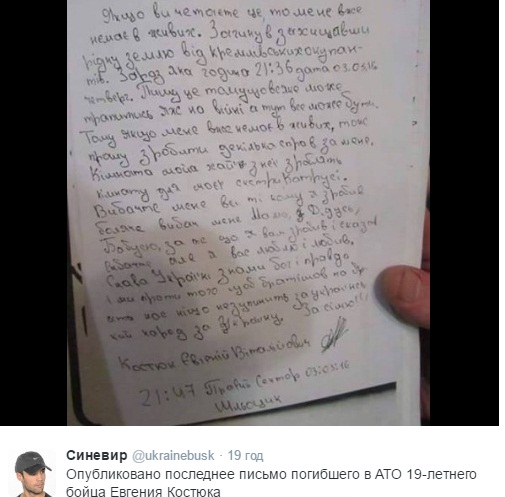 Якщо ви читаєте це, то мене вже
немає в живих. Загинув захищавши
рідну землю від кремлівських окупан-
тів. Зараз яка година 21:36 дата 03.03.16
четверг. Пишу це тому що всяке може
трапитись як на війні а тут все може бути.
Тому якщо мене вже немає в живих, тож
прошу зробити декілька справ за мене.
Кімната моя хай з неї зроблять
кімнату для моєї сестри Катрусі.
Вибачте мене всі ті кому я зробив
боляче вибач мене Мамо, Дідусь,
Бабусю, за це що я вам зробив і сказав
вибачте але я вас люблю і любив.
Слава Україні з нами бог і правда
і ми проти того щоб братішов на бр
ата нас ніщо незупинить за українсь
кий народ за Україну. За сімю!!!
Костюк Евгеній Віталійович
21:47 Правий Сектор 03.03.16
Синевир @ukrainebusk · 19 год
Опубликовано последнее письмо погибшего в АТО 19-летнего
бойца Евгения Костюка